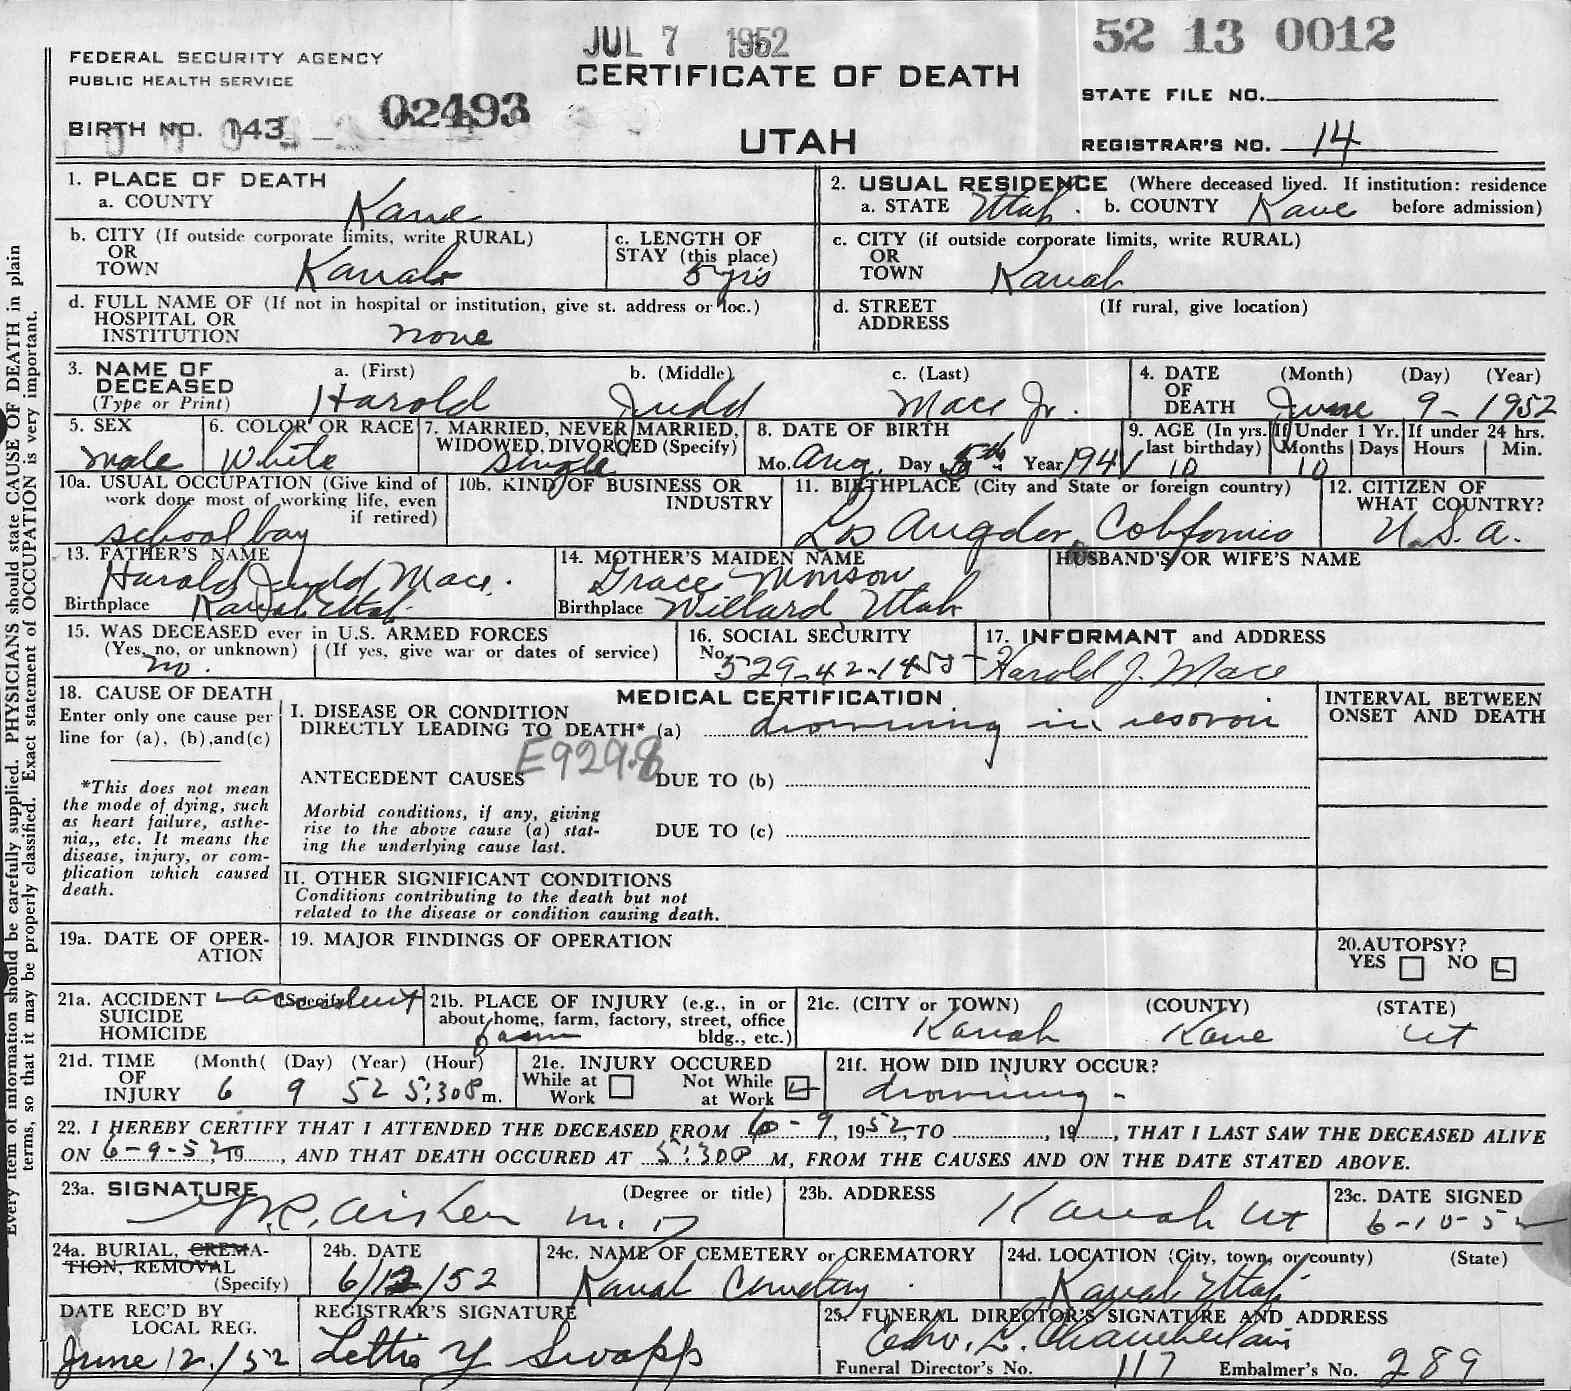 JUL 7 1952
52 13 0012
FEDERAL SECURITY AGENCY
PUBLIC HEALTH SERVICE
CERTIFICATE OF DEATH
STATE FILE NO.
BIRTH NO. 143
02493
UTAH
REGISTRAR'S NO. 14
Every item of information should be carefully supplied. PHYSICIANS should state CAUSE OF DEATH in plain
terms, so that it may be properly classified. Exact statement of OCCUPATION is very important.
1. PLACE OF DEATH
a. COUNTY Kane
2. USUAL RESIDENCE (Where deceased lived. If institution: residence
a. STATE Utah. b. COUNTY Kane before admission)
b. CITY (If outside corporate limits, write RURAL)
OR
TOWN Kanab
c. LENGTH OF
STAY (this place)
5 yrs
c. CITY (if outside corporate limits, write RURAL)
OR
TOWN Kanab
d. FULL NAME OF (If not in hospital or institution, give st. address or loc.)
HOSPITAL OR
INSTITUTION none
d. STREET (If rural, give location)
ADDRESS
3. NAME OF
DECEASED
(Type or Print)
a. (First) b. (Middle) c. (Last)
Harold Judd Mace Jr.
4. DATE (Month) (Day) (Year)
OF
DEATH June 9- 1952
5. SEX
male
6. COLOR OR RACE
White
7. MARRIED, NEVER MARRIED,
WIDOWED, DIVORCED (Specify)
single
8. DATE OF BIRTH
Mo. Aug. Day 5th Year 1941
9. AGE (In yrs.
last birthday)
10
If Under 1 Yr.
Months Days
10
If under 24 hrs.
Hours Min.
10a. USUAL OCCUPATION (Give kind of
work done most of working life, even
if retired)
school boy
10b. KIND OF BUSINESS OR
INDUSTRY
11. BIRTHPLACE (City and State or foreign country)
Los Angeles, California
12. CITIZEN OF
WHAT COUNTRY?
U.S.A.
13. FATHER'S NAME
Harold Judd Mace.
Birthplace Kanab Utah
14. MOTHER'S MAIDEN NAME
Grace Monson
Birthplace Willard Utah
HUSBAND'S OR WIFE'S NAME
15. WAS DECEASED ever in U.S. ARMED FORCES
(Yes, no, or unknown) (If yes, give war or dates of service)
no.
16. SOCIAL SECURITY
No. 529-42-1455
17. INFORMANT and ADDRESS
Harold J. Mace
18. CAUSE OF DEATH
Enter only one cause per
line for (a), (b),and(c)
*This does not mean
the mode of dying, such
as heart failure, asthe-
nia,, etc. It means the
disease, injury, or com-
plication which caused
death.
MEDICAL CERTIFICATION
I. DISEASE OR CONDITION
DIRECTLY LEADING TO DEATH* (a) drowning in resovoir
E929.8
ANTECEDENT CAUSES DUE TO (b)
Morbid conditions, if any, giving
rise to the above cause (a) stat-
ing the underlying cause last.
DUE TO (c)
II. OTHER SIGNIFICANT CONDITIONS
Conditions contributing to the death but not
related to the disease or condition causing death.
INTERVAL BETWEEN
ONSET AND DEATH
19a. DATE OF OPER-
ATION
19. MAJOR FINDINGS OF OPERATION
20.AUTOPSY?
YES NO
21a. ACCIDENT (Specify) accident
SUICIDE
HOMICIDE
21b. PLACE OF INJURY (e.g., in or
about home, farm, factory, street, office
bldg., etc.)
farm
21c. (CITY or TOWN) (COUNTY) (STATE)
Kanab Kane Ut
21d. TIME (Month( (Day) (Year) (Hour)
OF
INJURY 6 9 52 5:30P m.
21e. INJURY OCCURED
While at Work Not While at Work
21f. HOW DID INJURY OCCUR?
drowning -
22. I HEREBY CERTIFY THAT I ATTENDED THE DECEASED FROM 6-9, 1952, TO , 19 , THAT I LAST SAW THE DECEASED ALIVE
ON 6-9-52, 19 , AND THAT DEATH OCCURED AT 5:30P M, FROM THE CAUSES AND ON THE DATE STATED ABOVE.
23a. SIGNATURE (Degree or title)
Aiken M.D
23b. ADDRESS
Kanab Ut
23c. DATE SIGNED
6-10-52
24a. BURIAL, CREMA-
TION, REMOVAL
(Specify)
24b. DATE
6/12/52
24c. NAME OF CEMETERY or CREMATORY
Kanab Cemetery.
24d. LOCATION (City, town, or county) (State)
Kanab Utah
DATE REC'D BY
LOCAL REG.
June 12./52
REGISTRAR'S SIGNATURE
Lettie Y Swapp
25. FUNERAL DIRECTOR'S SIGNATURE AND ADDRESS
Edw. L. Chamberlain
Funeral Director's No. 117 Embalmer's No. 289